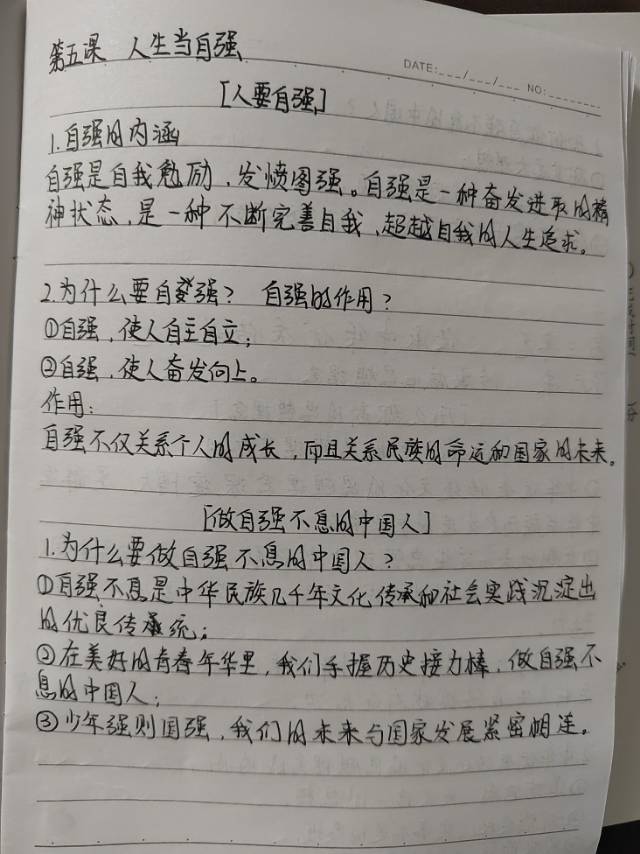 第五课 人生当自强
DATE:___/___/___ NO:______
[人要自强]
1.自强的内涵
自强是自我勉励、发愤图强。自强是一种奋发进取的精
神状态,是一种不断完善自我、超越自我的人生追求。
2.为什么要自强? 自强的作用?
①自强,使人自主自立;
②自强,使人奋发向上。
作用:
自强不仅关系个人的成长,而且关系民族的命运和国家的未来。
[做自强不息的中国人]
1.为什么要做自强不息的中国人?
①自强不息是中华民族几千年文化传承和社会实践沉淀出
的优良传统;
②在美好的青春年华里,我们手握历史接力棒,做自强不
息的中国人;
③少年强则国强,我们的未来与国家发展紧密相连。